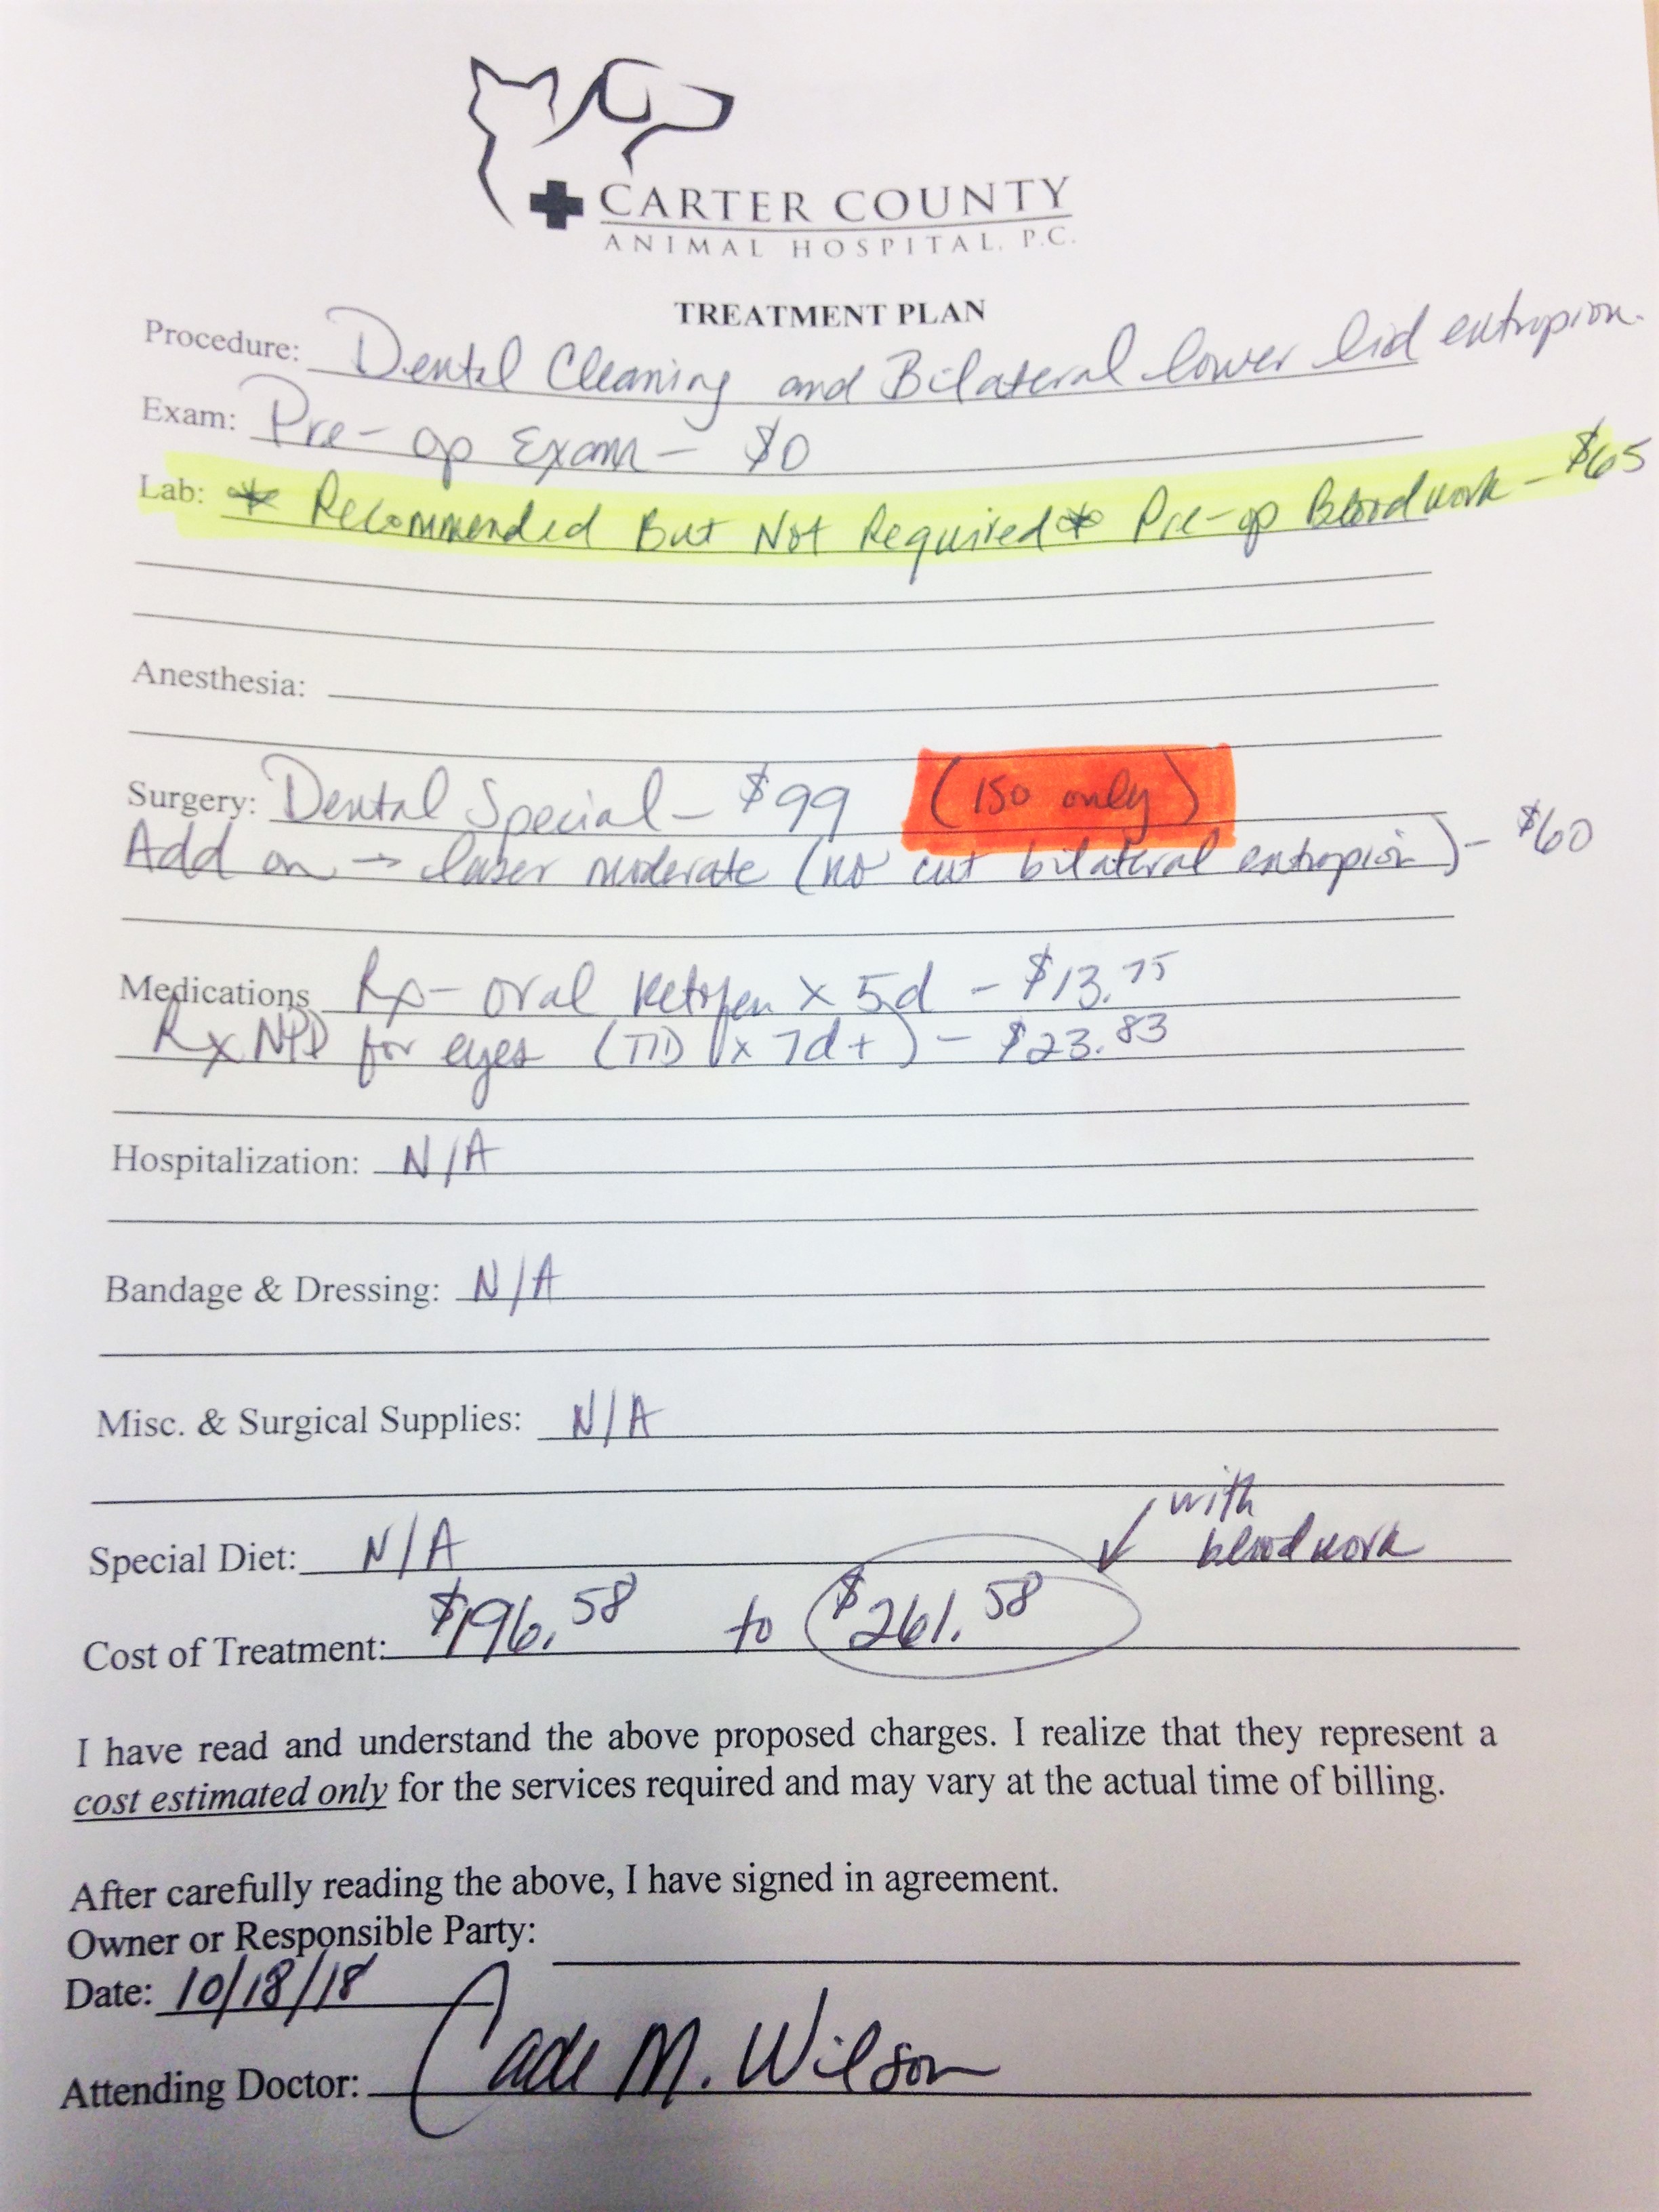 CARTER COUNTY
ANIMAL HOSPITAL, P.C.
TREATMENT PLAN
Procedure: Dental Cleaning and Bilateral lower lid entropion.
Exam: Pre-op Exam - $0
Lab: * Recommended But Not Required * Pre-op Bloodwork - $65
Anesthesia:
Surgery: Dental Special - $99 (ISO only)
Add on → laser moderate (no cut bilateral entropion) - $60
Medications Rx- oral ketofen x 5d - $13.75
Rx NPD for eyes (TID x 7d+) - $23.83
Hospitalization: N/A
Bandage & Dressing: N/A
Misc. & Surgical Supplies: N/A
with
Special Diet: N/A bloodwork
Cost of Treatment: $196.58 to $261.58
I have read and understand the above proposed charges. I realize that they represent a
cost estimated only for the services required and may vary at the actual time of billing.
After carefully reading the above, I have signed in agreement.
Owner or Responsible Party:
Date: 10/18/18
Attending Doctor: Cade M. Wilson